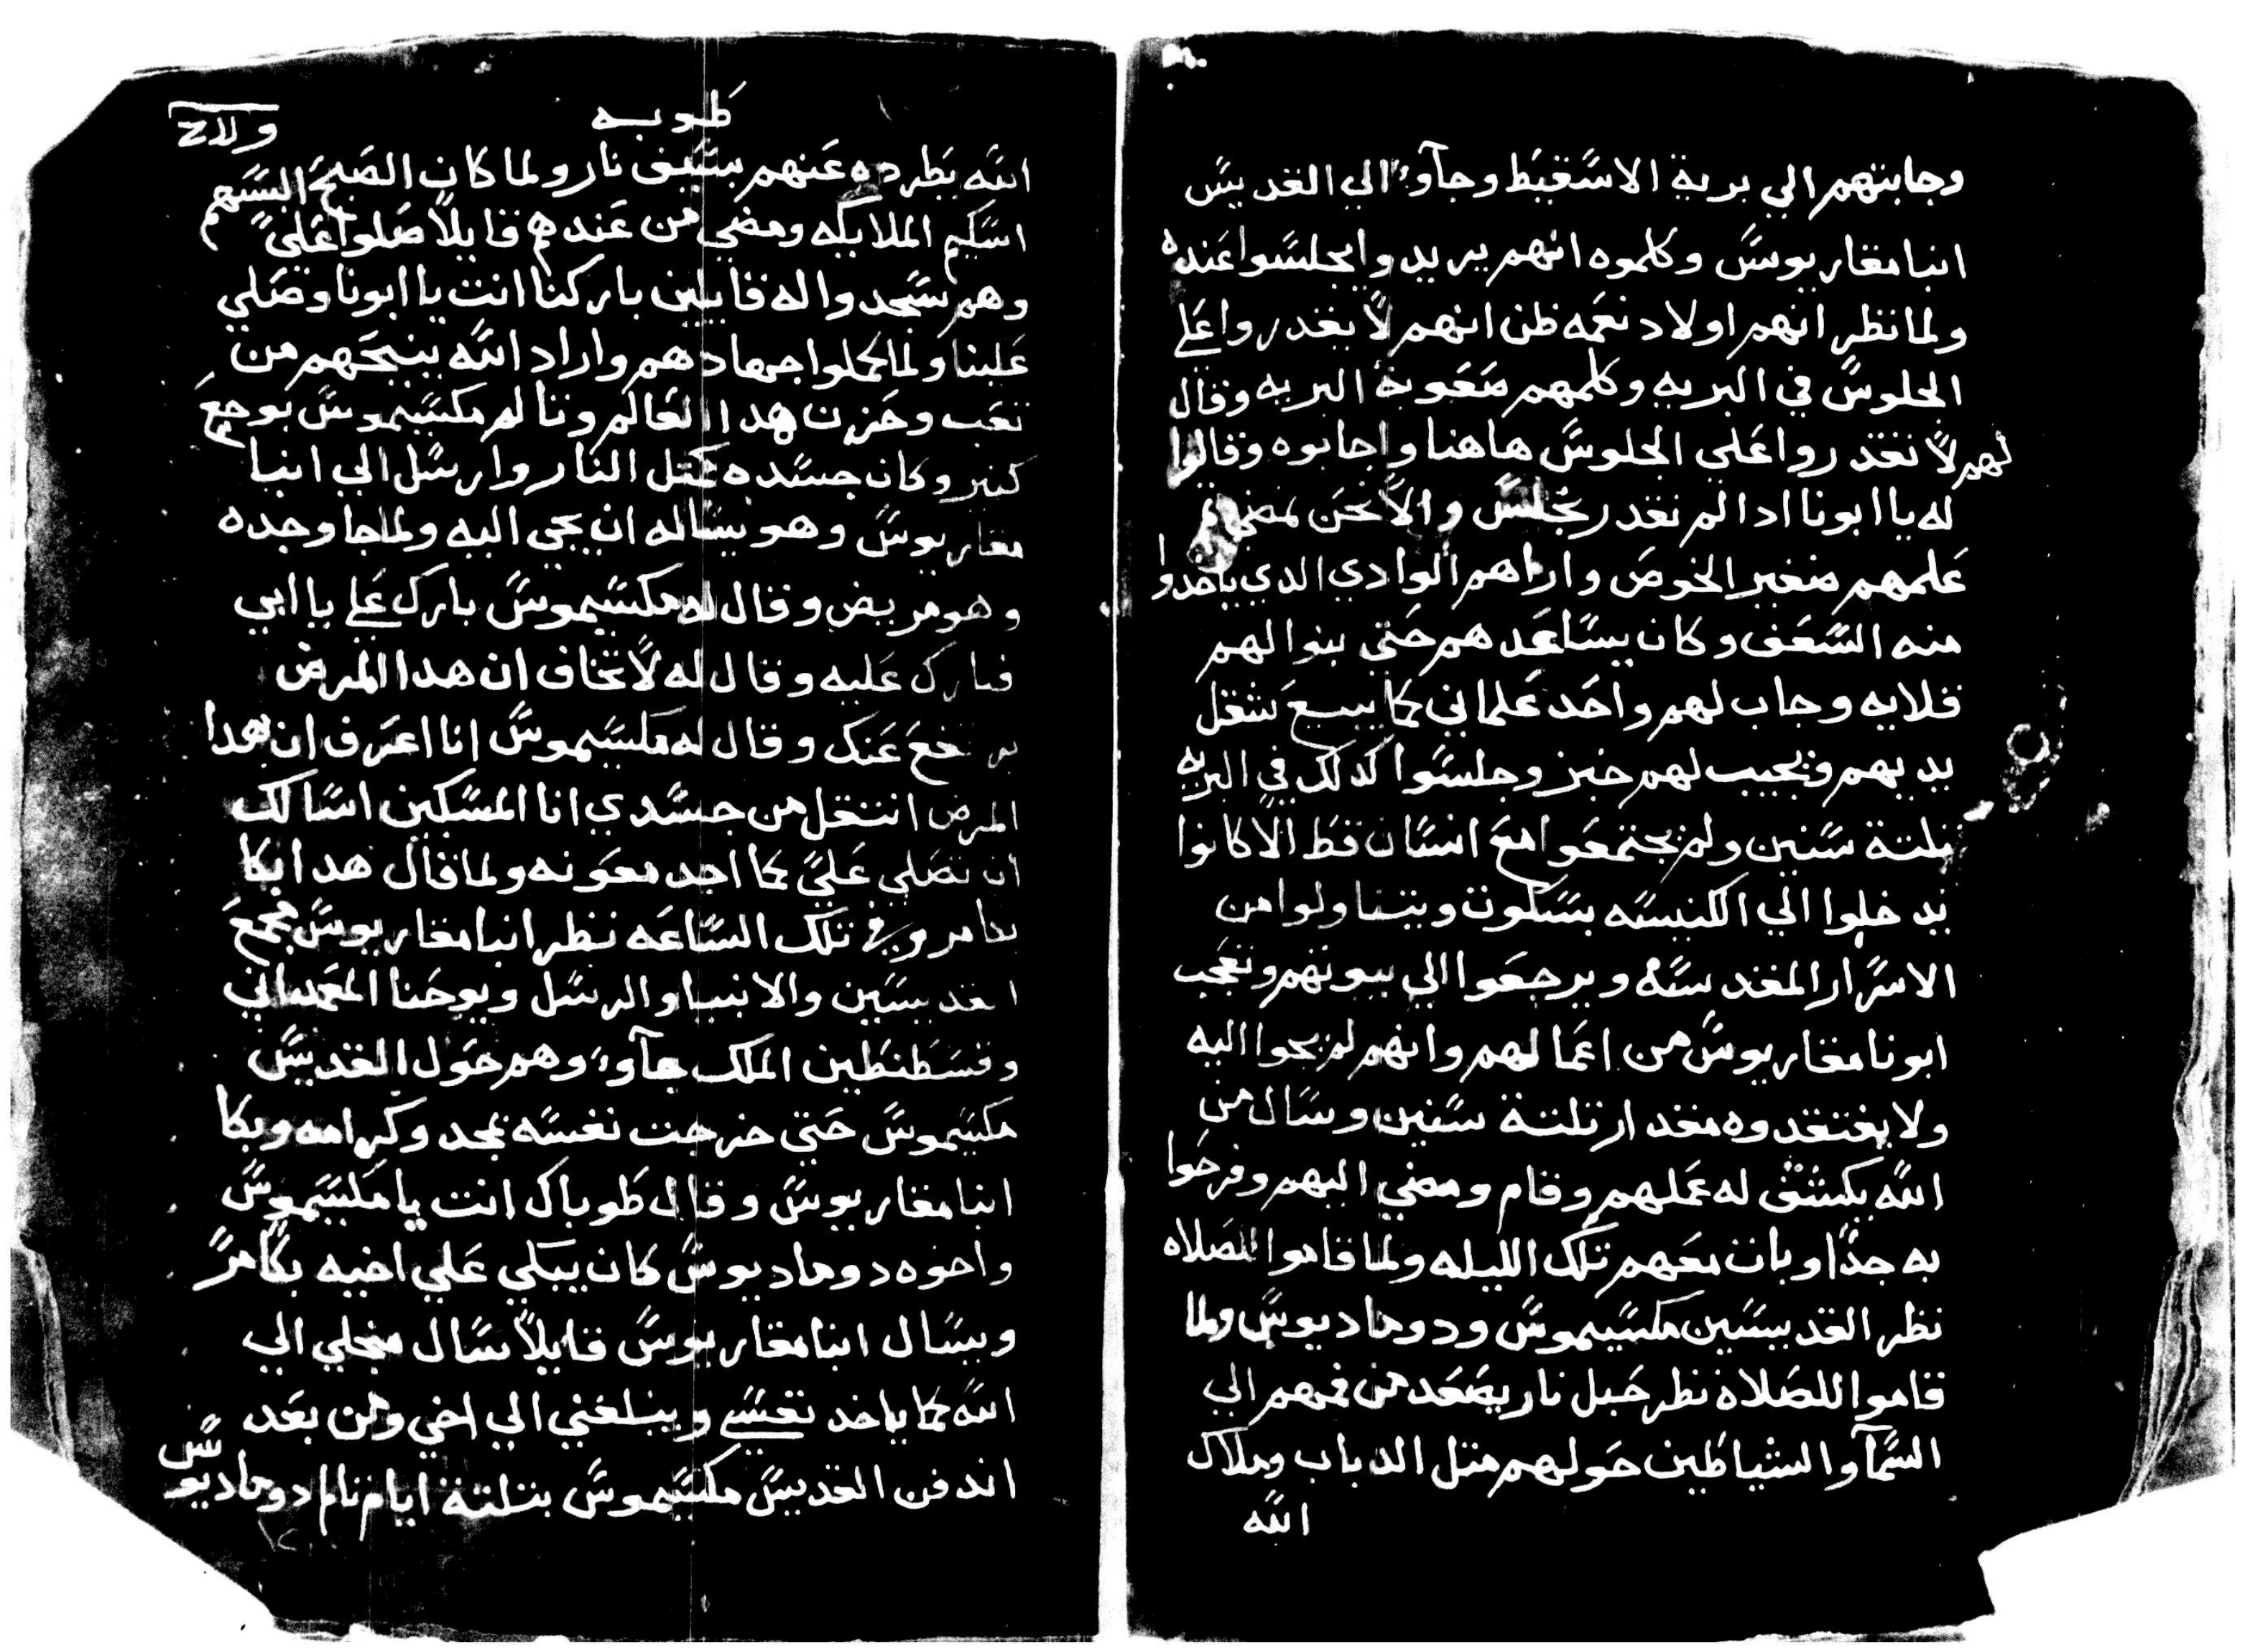 وجابتهم الي برية الاسقيط وجآوا الي القديس
انبا مقاريوس وكلموه انهم يريدوا يجلسوا عنده
ولما نظر انهم اولاد نعمه ظن انهم لا يقدروا علي
الجلوس في البريه وكلمهم صعوبة البريه وقال
لهم لا تقدروا علي الجلوس هاهنا واجابوه وقالوا
له يا ابونا ادا لم نقدر نجلس والا نحن نمضي
علمهم ضغير الخوص واراهم الوادي الدي ياخدوا
منه السعف وكان يساعدهم حتي بنوا لهم
قلايه وجاب لهم واحد علماني كما يبيع شغل
يديهم ويجيب لهم خبز وجلسوا كدلك في البريه
تلتة سنين ولم يجتمعوا مع انسان قط الا كانوا
يدخلوا الي الكنيسه بسكون ويتناولوا من
الاسرار المقدسه ويرجعوا الي بيوتهم وتعجب
ابونا مقاريوس من اعمالهم وانهم لم يجوا اليه
ولا يفتقدوه مقدار تلتة سنين وسال من
الله يكشف له عملهم وقام ومضي اليهم وفرحوا
به جدا وبات معهم تلك الليله ولما قاموا للصلاه
نظر القديسين مكسيموس ودوماديوس ولما
قاموا للصلاة نظر حبل نار يصعد من فمهم الي
السمآ والشياطين حولهم متل الدباب وملاك
الله
طوبه
الله يطرده عنهم بسيف نار ولما كان الصبح البسهم
اسكيم الملايكه ومضي من عندهم قايلا صلوا علي
وهم سجدوا له قايلين باركنا انت يا ابونا وصلي
علينا ولما كملوا جهادهم واراد الله ينيحهم من
تعب وحزن هدا العالم وتالم مكسيموس بوجع
كتير وكان جسده متل النار وارسل الي انبا
مقاريوس وهو يساله ان يجي اليه ولما جا وجده
وهو مريض وقال له مكسيموس بارك علي يا ابي
فبارك عليه وقال له لا تخاف ان هدا المرض
يرتفع عنك وقال له مكسيموس انا اعرف ان هدا
المرض انتقل من جسدي انا المسكين اسالك
ان تصلي علي كما اجد معونه ولما قال هدا بكا
بكا مر وفي تلك الساعه نظر انبا مقاريوس مجمع
القديسين والانبيا والرسل ويوحنا المعمداني
وقسطنطين الملك جآوا وهم حول القديس
مكسيموس حتي خرجت نفسه بمجد وكرامه وبكا
انبا مقاريوس وقال طوباك انت يا مكسيموس
واخوه دوماديوس كان يبكي علي اخيه بكا مر
ويسال انبا مقاريوس قايلا سال منجلي الي
الله كما ياخد نفسي ويبلغني الي اخي ومن بعد
اندفن القديس مكسيموس بتلتة ايام تالم دوماديوس